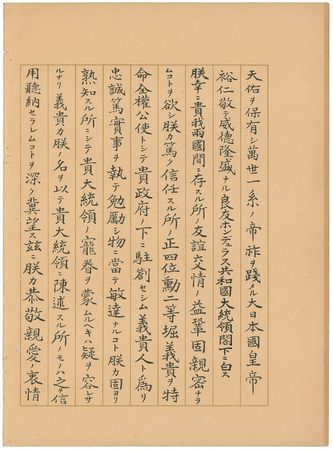 天佑ヲ保有シ萬世一系ノ帝祚ヲ踐メル大日本國皇帝
裕仁敬テ威德隆盛ナル良友ホンデュラス共和國大統領閣下ニ白ス
朕幸ニ貴我兩國間ニ存スル所ノ友誼交情ノ益鞏固親密ナラ
ムコトヲ欲シ朕カ篤ク信任スル所ノ正四位勳二等堀義貴ヲ特
命全權公使トシテ貴政府ノ下ニ駐劄セシム義貴人ト爲リ
忠誠篤實事ヲ執テ勉勵シ物ニ當テ敏達ナルコト朕カ固ヨリ
熟知スル所ニシテ貴大統領ノ寵眷ヲ蒙ムルヘキハ疑ヲ容レサ
ルナリ義貴カ朕ノ名ヲ以テ貴大統領ニ陳述スル所ノモノハ之ヲ信
用聽納セラレムコトヲ深ク冀望ス茲ニ朕カ恭敬親愛ノ衷情